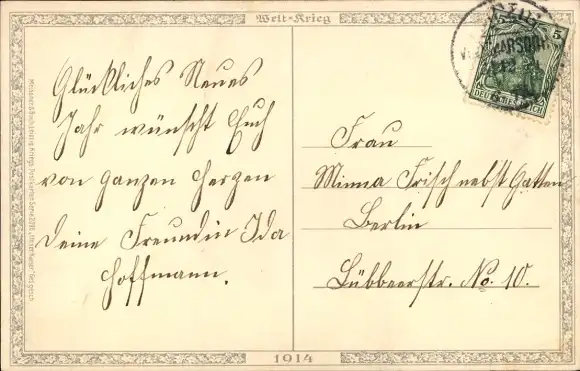 Welt-Krieg
Glückliches Neues
Jahr wünscht Euch
von ganzen Herzen
Deine Freundin Ida
Hoffmann.
5
DEUTSCHES REICH
Frau
Minna Frisch nebst Gatten
Berlin
Lübbenerstr. No. 10.
1914